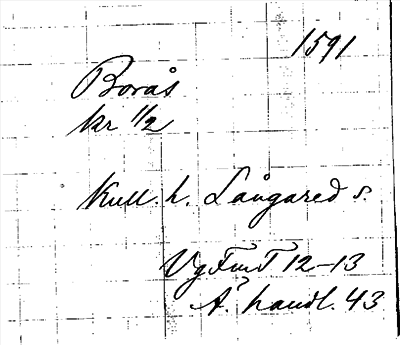 1591
Borås
kr 11/2
Kull. h. Långared s.
VgFmT 12-13
Ä. handl. 43